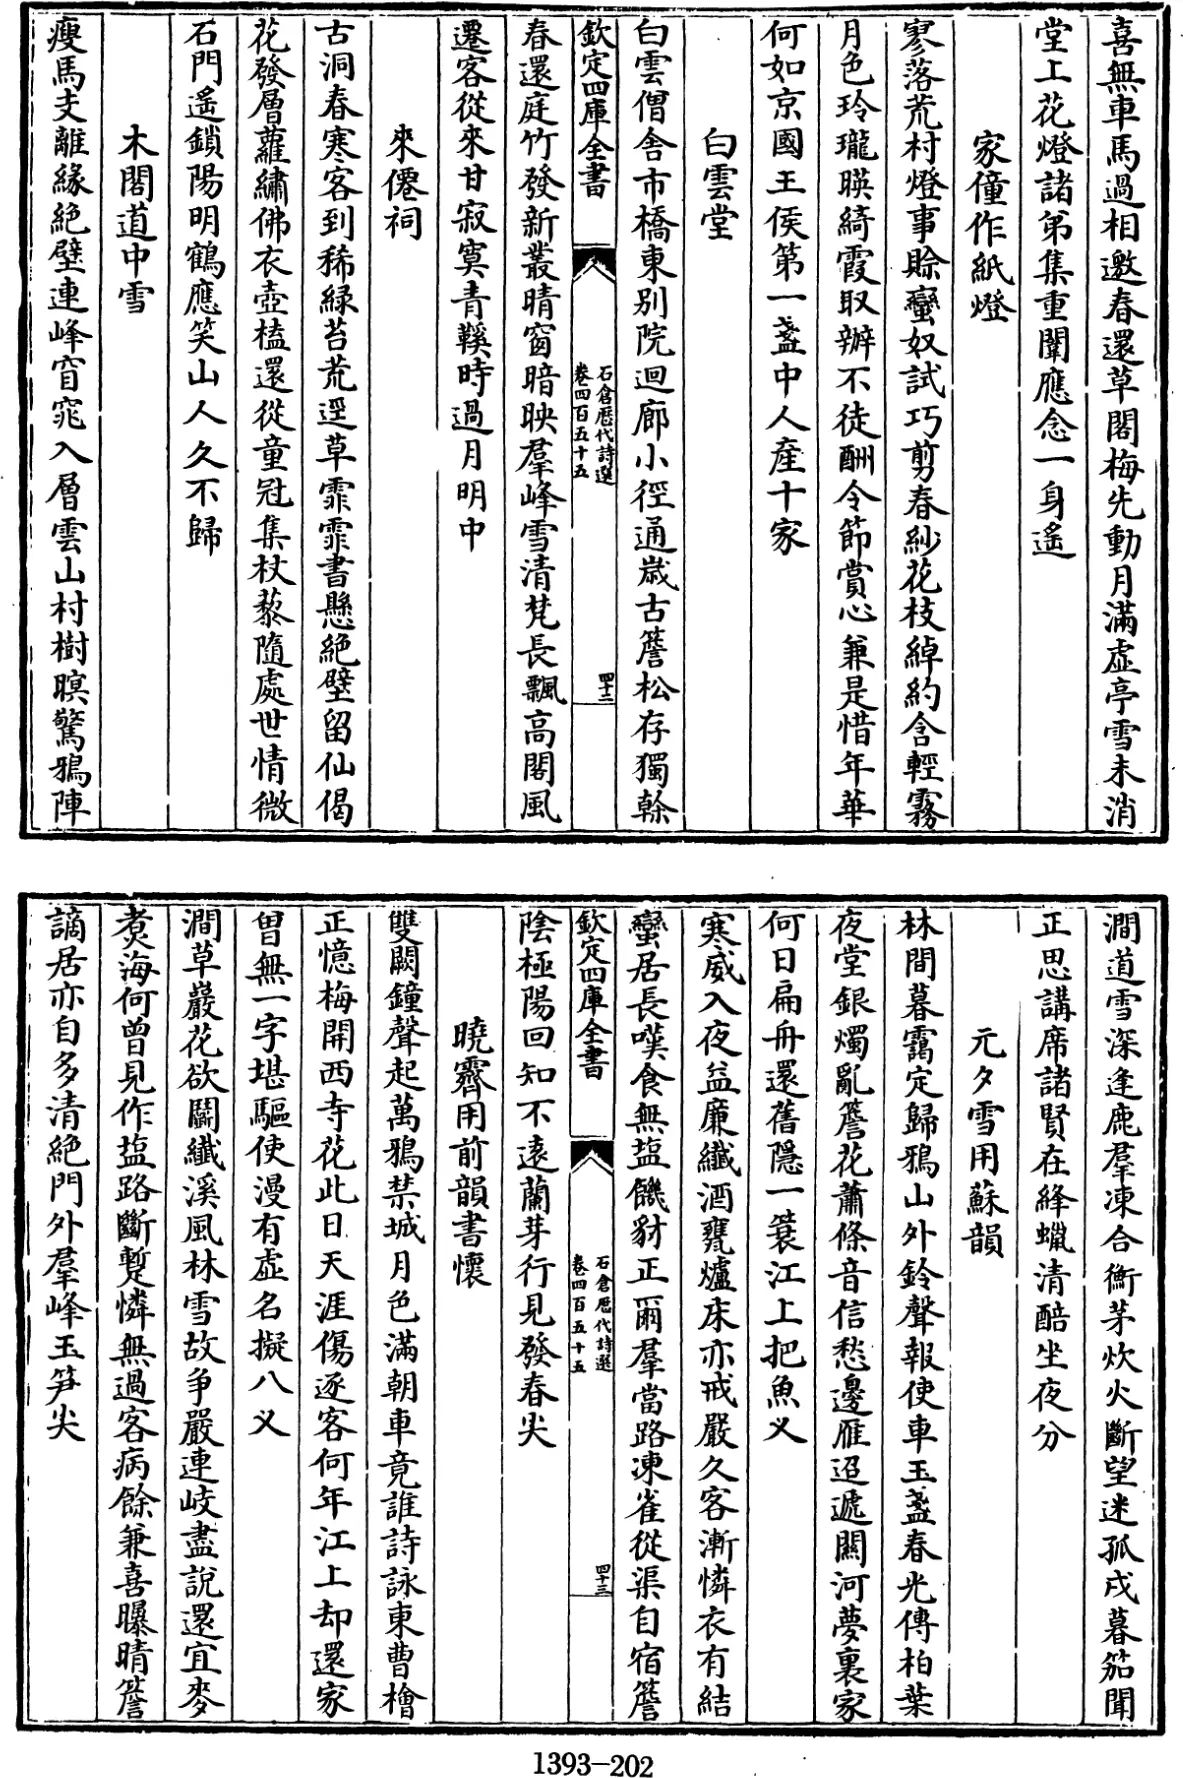 喜無車馬過相邀春還草閣梅先動月滿虛亭雪未消
堂上花燈諸弟集重闈應念一身遙
家僮作紙燈
寥落荒村燈事賒蠻奴試巧剪春紗花枝綽約含輕霧
月色玲瓏暎綺霞取辦不徒酬令節賞心兼是惜年華
何如京國王侯第一盞中人產十家
白雲堂
白雲僧舍市橋東別院迴廊小徑通歲古簷松存獨榦
欽定四庫全書
石倉歷代詩選
卷四百五十五
四十二
春還庭竹發新叢晴窗暗映羣峰雪清梵長飄高閣風
遷客從來甘寂寞青鞵時過月明中
來僊祠
古洞春寒客到稀綠苔荒逕草霏霏書懸絕壁留仙偈
花發層蘿繡佛衣壺榼還從童冠集杖藜隨處世情微
石門遙鎖陽明鶴應笑山人久不歸
木閣道中雪
瘦馬支離緣絕壁連峰窅窕入層雲山村樹暝驚鴉陣
澗道雪深逢鹿羣凍合衡茅炊火斷望迷孤戍暮笳聞
正思講席諸賢在絳蠟清醅坐夜分
元夕雪用蘇韻
林間暮靄定歸鴉山外鈴聲報使車玉盞春光傳柏葉
夜堂銀燭亂簷花蕭條音信愁邊雁迢遞關河夢裏家
何日扁舟還舊隱一蓑江上把魚义
寒威入夜益廉纖酒甕爐床亦戒嚴久客漸憐衣有結
蠻居長嘆食無盐饑豺正爾羣當路凍雀從渠自宿簷
欽定四庫全書
石倉歷代詩選
卷四百五十五
四十三
陰極陽回知不遠蘭芽行見發春尖
曉霽用前韻書懷
雙闕鐘聲起萬鴉禁城月色滿朝車竟誰詩詠東曹檜
正憶梅開西寺花此日天涯傷逐客何年江上却還家
曽無一字堪驅使漫有虛名擬八义
澗草巖花欲鬬纖溪風林雪故争嚴連岐盡說還宜麥
煮海何曾見作盐路斷暫憐無過客病餘兼喜曝晴簷
謫居亦自多清絶門外羣峰玉笋尖
1393-202